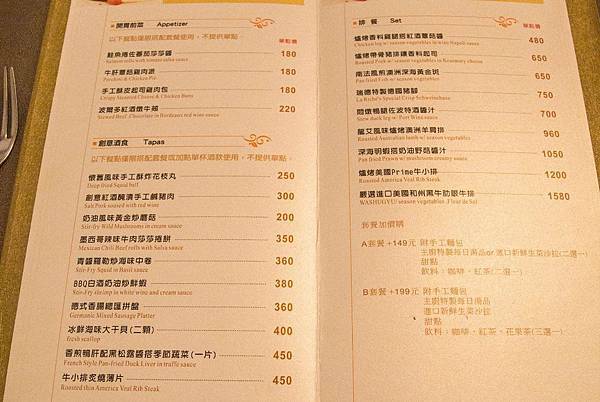 開胃前菜 Appetizer
單點價
以下餐點僅限搭配套餐使用，不提供單點。
鮭魚捲佐番茄莎莎醬 180
Salmon rolls with tomato salsa sauce
牛肝蕈菇雞肉派 180
Porchini & Chicken Pie
手工酥皮起司雞肉包 180
Crispy Assorted Cheese & Chicken Buns
波爾多紅酒燉牛腩 220
Stewed Beef /Chocolate in Bordeaux red wine sauce
創意酒食 Tapas
以下餐點僅限搭配套餐或加點單杯酒款使用，不提供單點。
懷舊風味手工酥炸花枝丸 250
Deep fried Squid ball
創意紅酒醃漬手工鹹豬肉 300
Salt Pork soused with red wine
奶油風味黃金炒蘑菇 200
Stir-fry Wild Mushrooms in cream sauce
墨西哥辣味牛肉莎莎捲餅 350
Mexican Chili Beef rolls with Salsa sauce
青醬羅勒炒海味中卷 360
Stir-Fry Squid in Basil sauce
BBQ白酒奶油炒鮮蝦 380
Stir-Fry shrimp in white wine and cream sauce
德式香腸總匯拼盤 360
Germanic Mixed Sausage Platter
冰鮮海味大干貝(二顆) 400
fresh scallop
香煎鴨肝配黑松露醬搭季節蔬菜(一片) 450
French Style Pan-fried Duck Liver in truffle sauce
牛小排炙燒薄片 450
Roasted thin America Veal Rib Steak
排餐 Set
單點價
爐烤香料雞腿搭紅酒蕈菇醬 480
Chicken leg w/ season vegetables in wine Napoli sauce
爐烤帶骨豬排鑲香料起司 650
Roasted Pork w/ season vegetables in Rosemary cheese
南法風煎澳洲深海黃金斑 650
Pan fried Fish w/ season vegetables
瑞德特製德國豬腳 750
La Riche's Special Crisp Schweinshaxe
悶燉鴨腿佐波特酒醬汁 700
Stew duck leg w/ Port Wine sauce
龍艾風味爐烤澳洲羊肩排 960
Roasted Australian Lamb w/ season vegetables
深海明蝦搭奶油野菇醬汁 1050
Pan fried Prawn w/ mushroom creamy sauce
爐烤美國Prime牛小排 1200
Roasted America Veal Rib Steak
嚴選進口美國和州黑牛肋眼牛排 1580
WASHUGYU/ season vegetables /Fleur de Sel
套餐加價購
A套餐 +149元 附手工麵包
主廚特製每日湯品or 進口新鮮生菜沙拉(二選一)
甜點
飲料：咖啡、紅茶(二選一)
B套餐 +199元 附手工麵包
主廚特製每日湯品
進口新鮮生菜沙拉
甜點
飲料：咖啡、紅茶、花果茶(三選一)